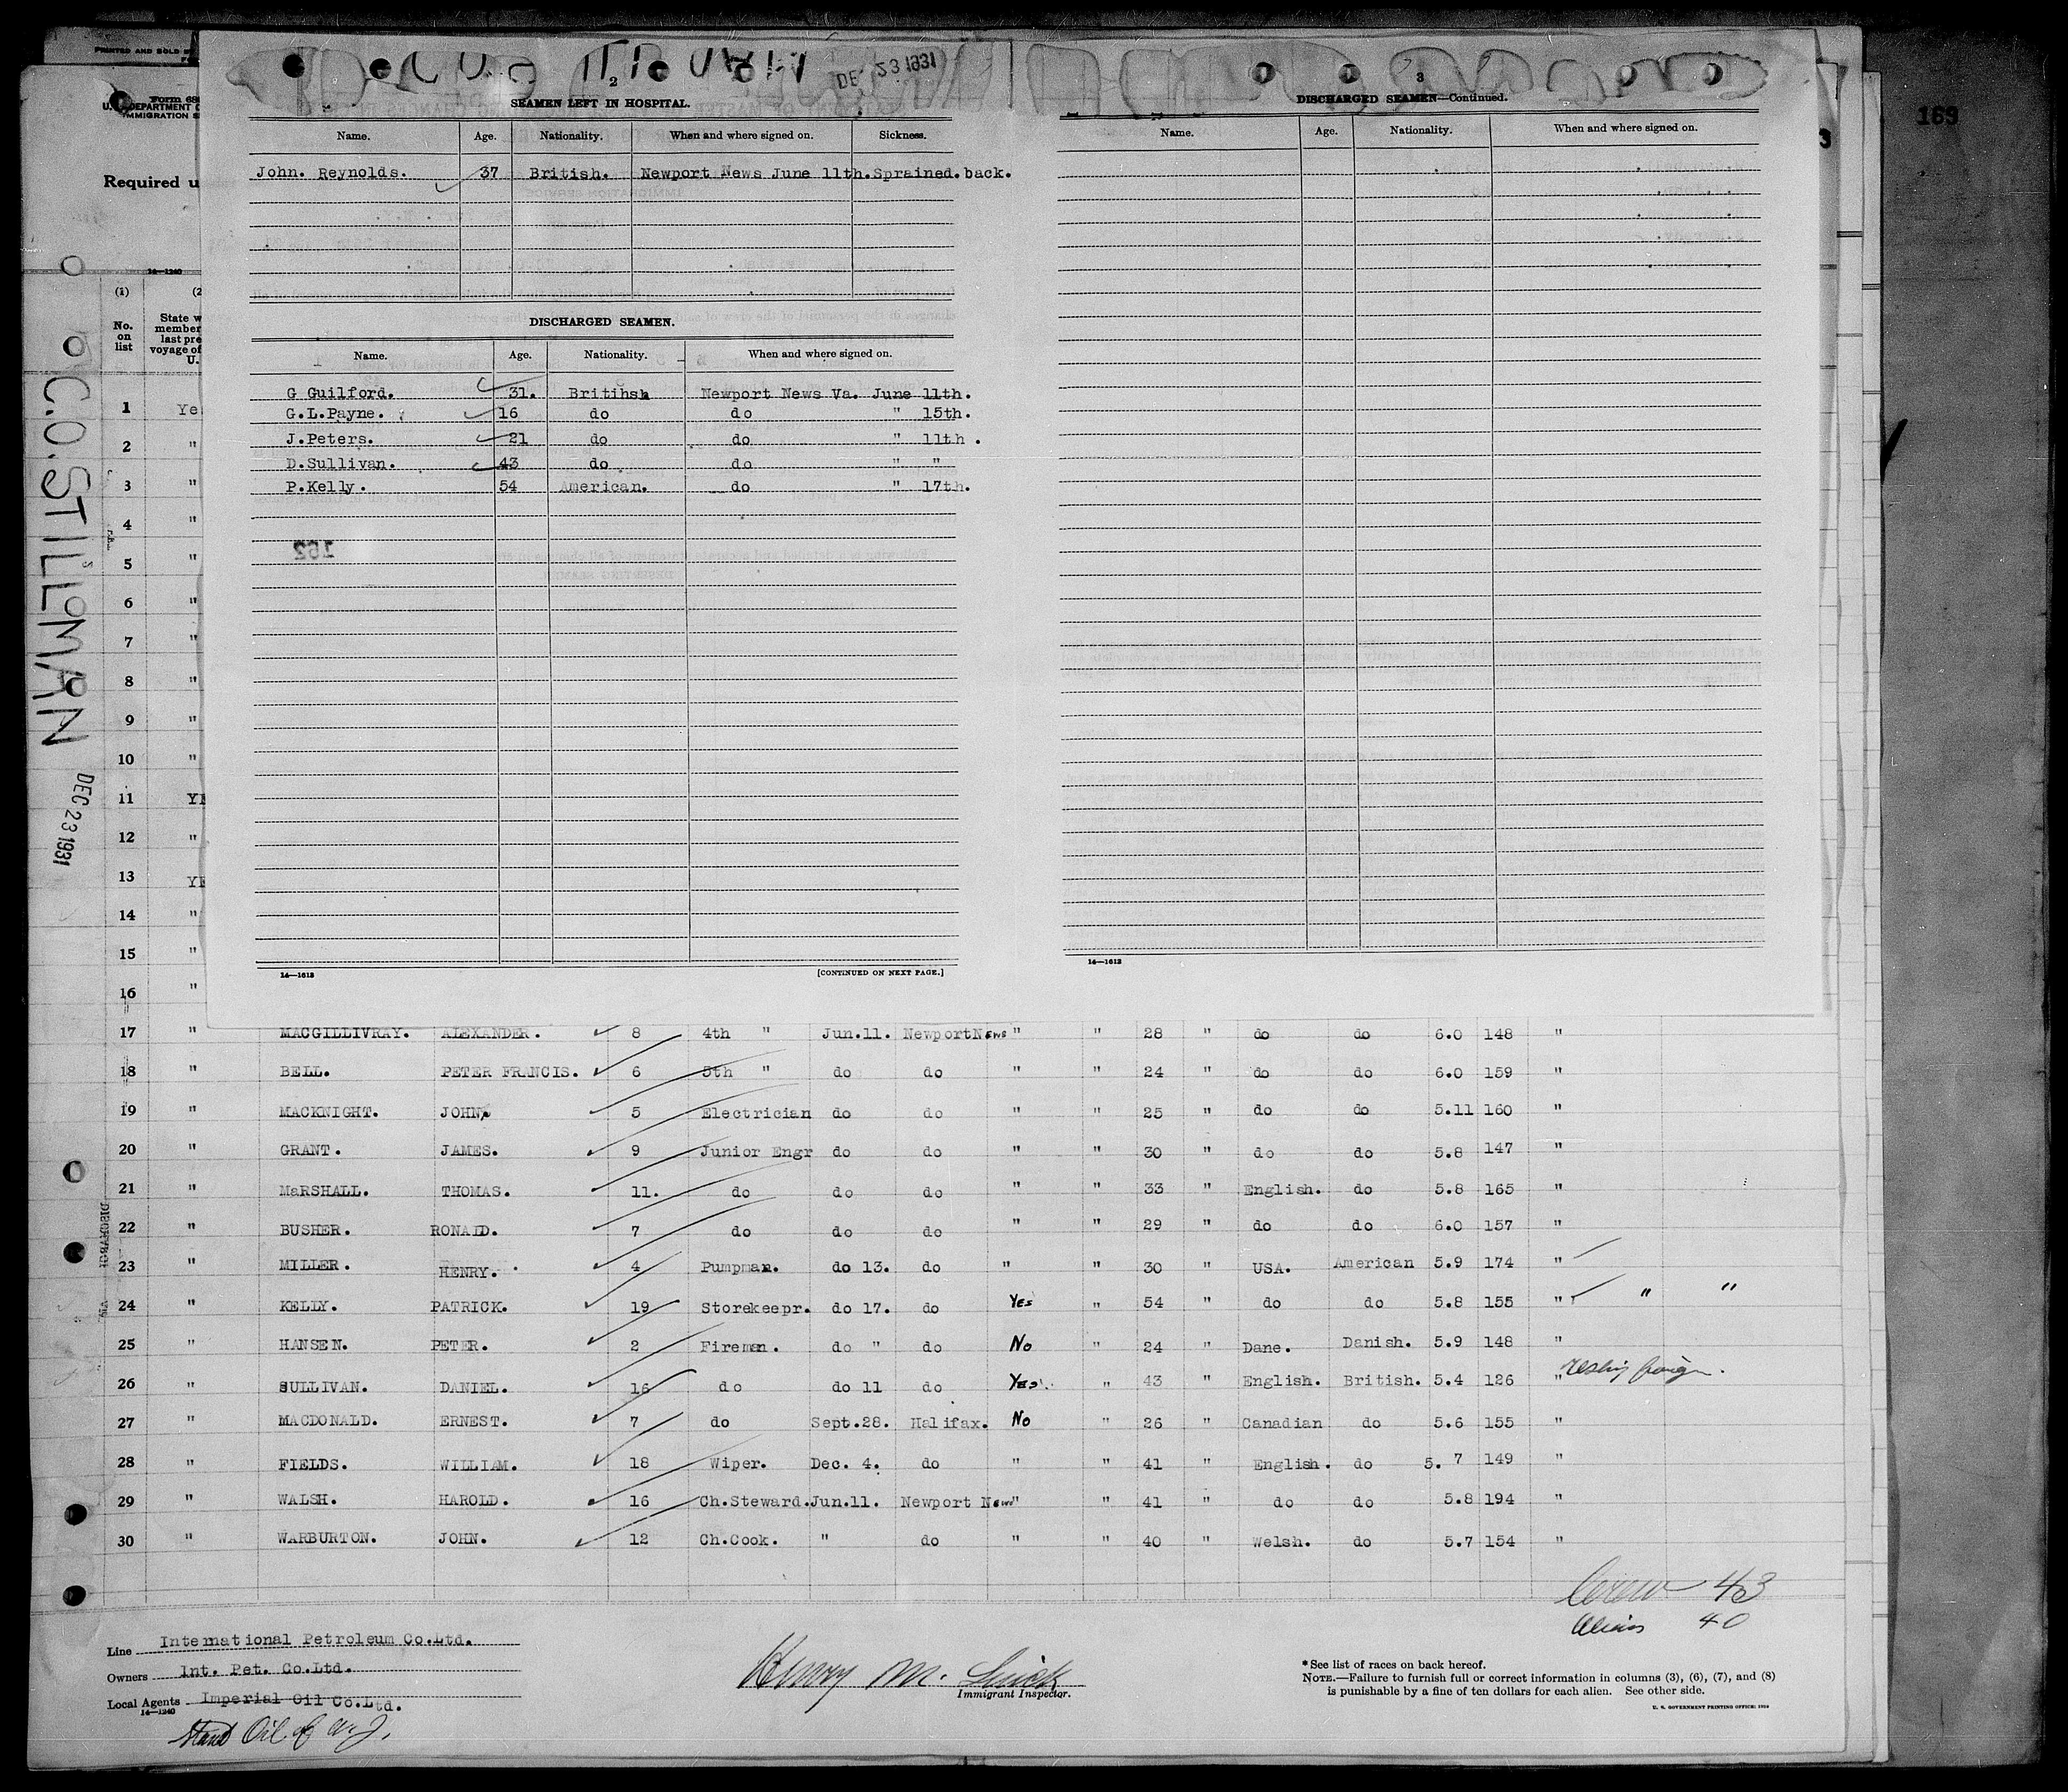 PRINTED AND SOLD
169
Form 68
U. DEPARTMENT
IMMIGRATION S
Required u
14-1240
C.O. STILLMAN
DEC 23 1931
2
DE. 23 1931
SEAMEN LEFT IN HOSPITAL.
Name. Age. Nationality. When and where signed on. Sickness.
John. Reynolds. 37 British. Newport News June 11th. Sprained.back.
DISCHARGED SEAMEN.
Name. Age. Nationality. When and where signed on.
G Guilford. 31. Britihsh Newport News Va. June 11th.
G.L.Payne. 16 do do " 15th.
J.Peters. 21 do do " 11th .
D.Sullivan. 43 do do " "
P.Kelly. 54 American. do " 17th.
162
14-1613 [CONTINUED ON NEXT PAGE.]
3
DISCHARGED SEAMEN—Continued.
Name. Age. Nationality. When and where signed on.
14-1613
3
(1) (2
No. on list
State w
member
last pre
voyage of
U.
1 Ye
2 "
3 "
4 "
5 "
6 "
7 "
8 "
9 "
10 "
11 YE
12 "
13 YE
14 "
15 "
16 "
17 " MACGILLIVRAY. ALEXANDER. 8 4th " Jun.11. Newport News " " 28 " do do 6.0 148 "
18 " BELL. PETER FRANCIS. 6 5th " do do " " 24 " do do 6.0 159 "
19 " MACKNIGHT. JOHN. 5 Electrician do do " " 25 " do do 5.11 160 "
20 " GRANT. JAMES. 9 Junior Engr do do " " 30 " do do 5.8 147 "
21 " MaRSHALL. THOMAS. 11. do do do " " 33 " English. do 5.8 165 "
22 " BUSHER. RONALD. 7 do do do " " 29 " do do 6.0 157 "
23 " MILLER. HENRY. 4 Pumpman. do 13. do " " 30 " USA. American 5.9 174 "
24 " KELLY. PATRICK. 19 Storekeepr. do 17. do Yes " 54 " do do 5.8 155 " " "
25 " HANSEN. PETER. 2 Fireman. do " do No " 24 " Dane. Danish. 5.9 148 "
26 " SULLIVAN. DANIEL. 16 do do 11 do Yes " 43 " English. British. 5.4 126 " reship foreign.
27 " MACDONALD. ERNEST. 7 do Sept.28. Halifax. No " 26 " Canadian do 5.6 155 "
28 " FIELDS. WILLIAM. 18 Wiper. Dec. 4. do " " 41 " English. do 5.7 149 "
29 " WALSH. HAROLD. 16 Ch.Steward. Jun.11. Newport News " " 41 " do do 5.8 194 "
30 " WARBURTON. JOHN. 12 Ch.Cook. " do " " 40 " Welsh. do 5.7 154 "
Crew 43
Aliens 40
Line International Petroleum Co.Ltd.
Owners Int. Pet. Co.Ltd.
Local Agents Imperial Oil Co.Ltd.
14-1240
Stand Oil of N.J.
Henry M.
Immigrant Inspector.
*See list of races on back hereof.
NOTE.—Failure to furnish full or correct information in columns (3), (6), (7), and (8)
is punishable by a fine of ten dollars for each alien. See other side.
U. S. GOVERNMENT PRINTING OFFICE: 1929